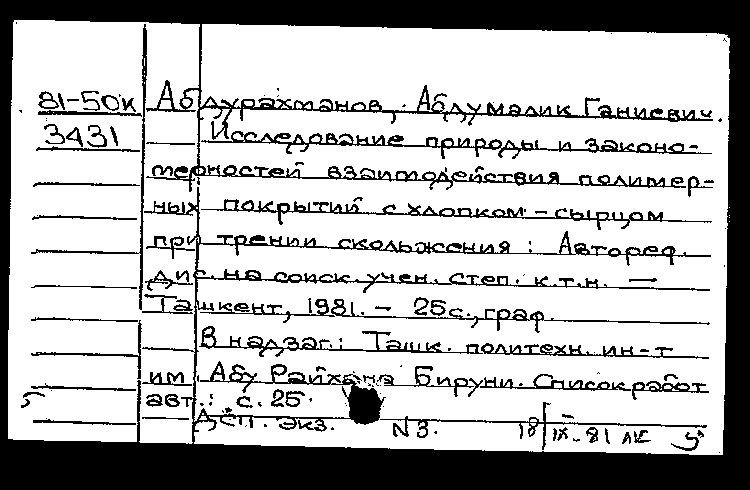 81-50к Абдурахманов, Абдумалик Ганиевич.
3431 Исследование природы и законо-
мерностей взаимодействия полимер-
ных покрытий с хлопком-сырцом
при трении скольжения: Автореф.
дис. на соиск. учен. степ. к.т.н. —
Ташкент, 1981. - 25с., граф.
В надзаг.: Ташк. политехн. ин-т
им Абу Райхана Бируни. Список работ
авт.: с. 25.
ДСП. экз. N3. 18/IX-81